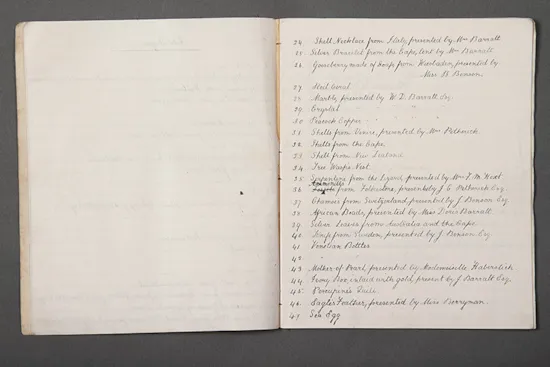 24. Shell Necklace from Italy, presented by Mrs Barratt
25. Silver Bracelet from the Cape, lent by Mrs Barratt
26. Gooseberry, made of soap from Wiesbaden, presented by
Miss B. Benson.
27.
28. Marble, presented by W. D. Barratt Esq
29. Crystal " " "
30. Peacock Copper " " "
31. Shells from Venice, presented by Mrs
32. Shells from the Cape
33. Shell from New Zealand
34. Tree Wasp's Nest
35. Serpentine from the Lizard, presented by Mrs F. M. West
Ammonites
36. from Folkestone, presented by J. E. Esq
37. Chamois from Switzerland, presented by J. Benson Esq
38. African Beads, presented by Miss Doris Barratt
39. Silver Leaves from Australia and the Cape.
40. from Sweden, presented by J. Benson Esq
41. Venetian Bottles
42. " "
43. Mother of Pearl, presented by Mademoiselle
44. Ivory Box, inlaid with gold, present by J. Barratt Esq.
45. Porcupine's Quill
46. Eagle's Feather, presented by Miss Berryman.
47. Sea Egg